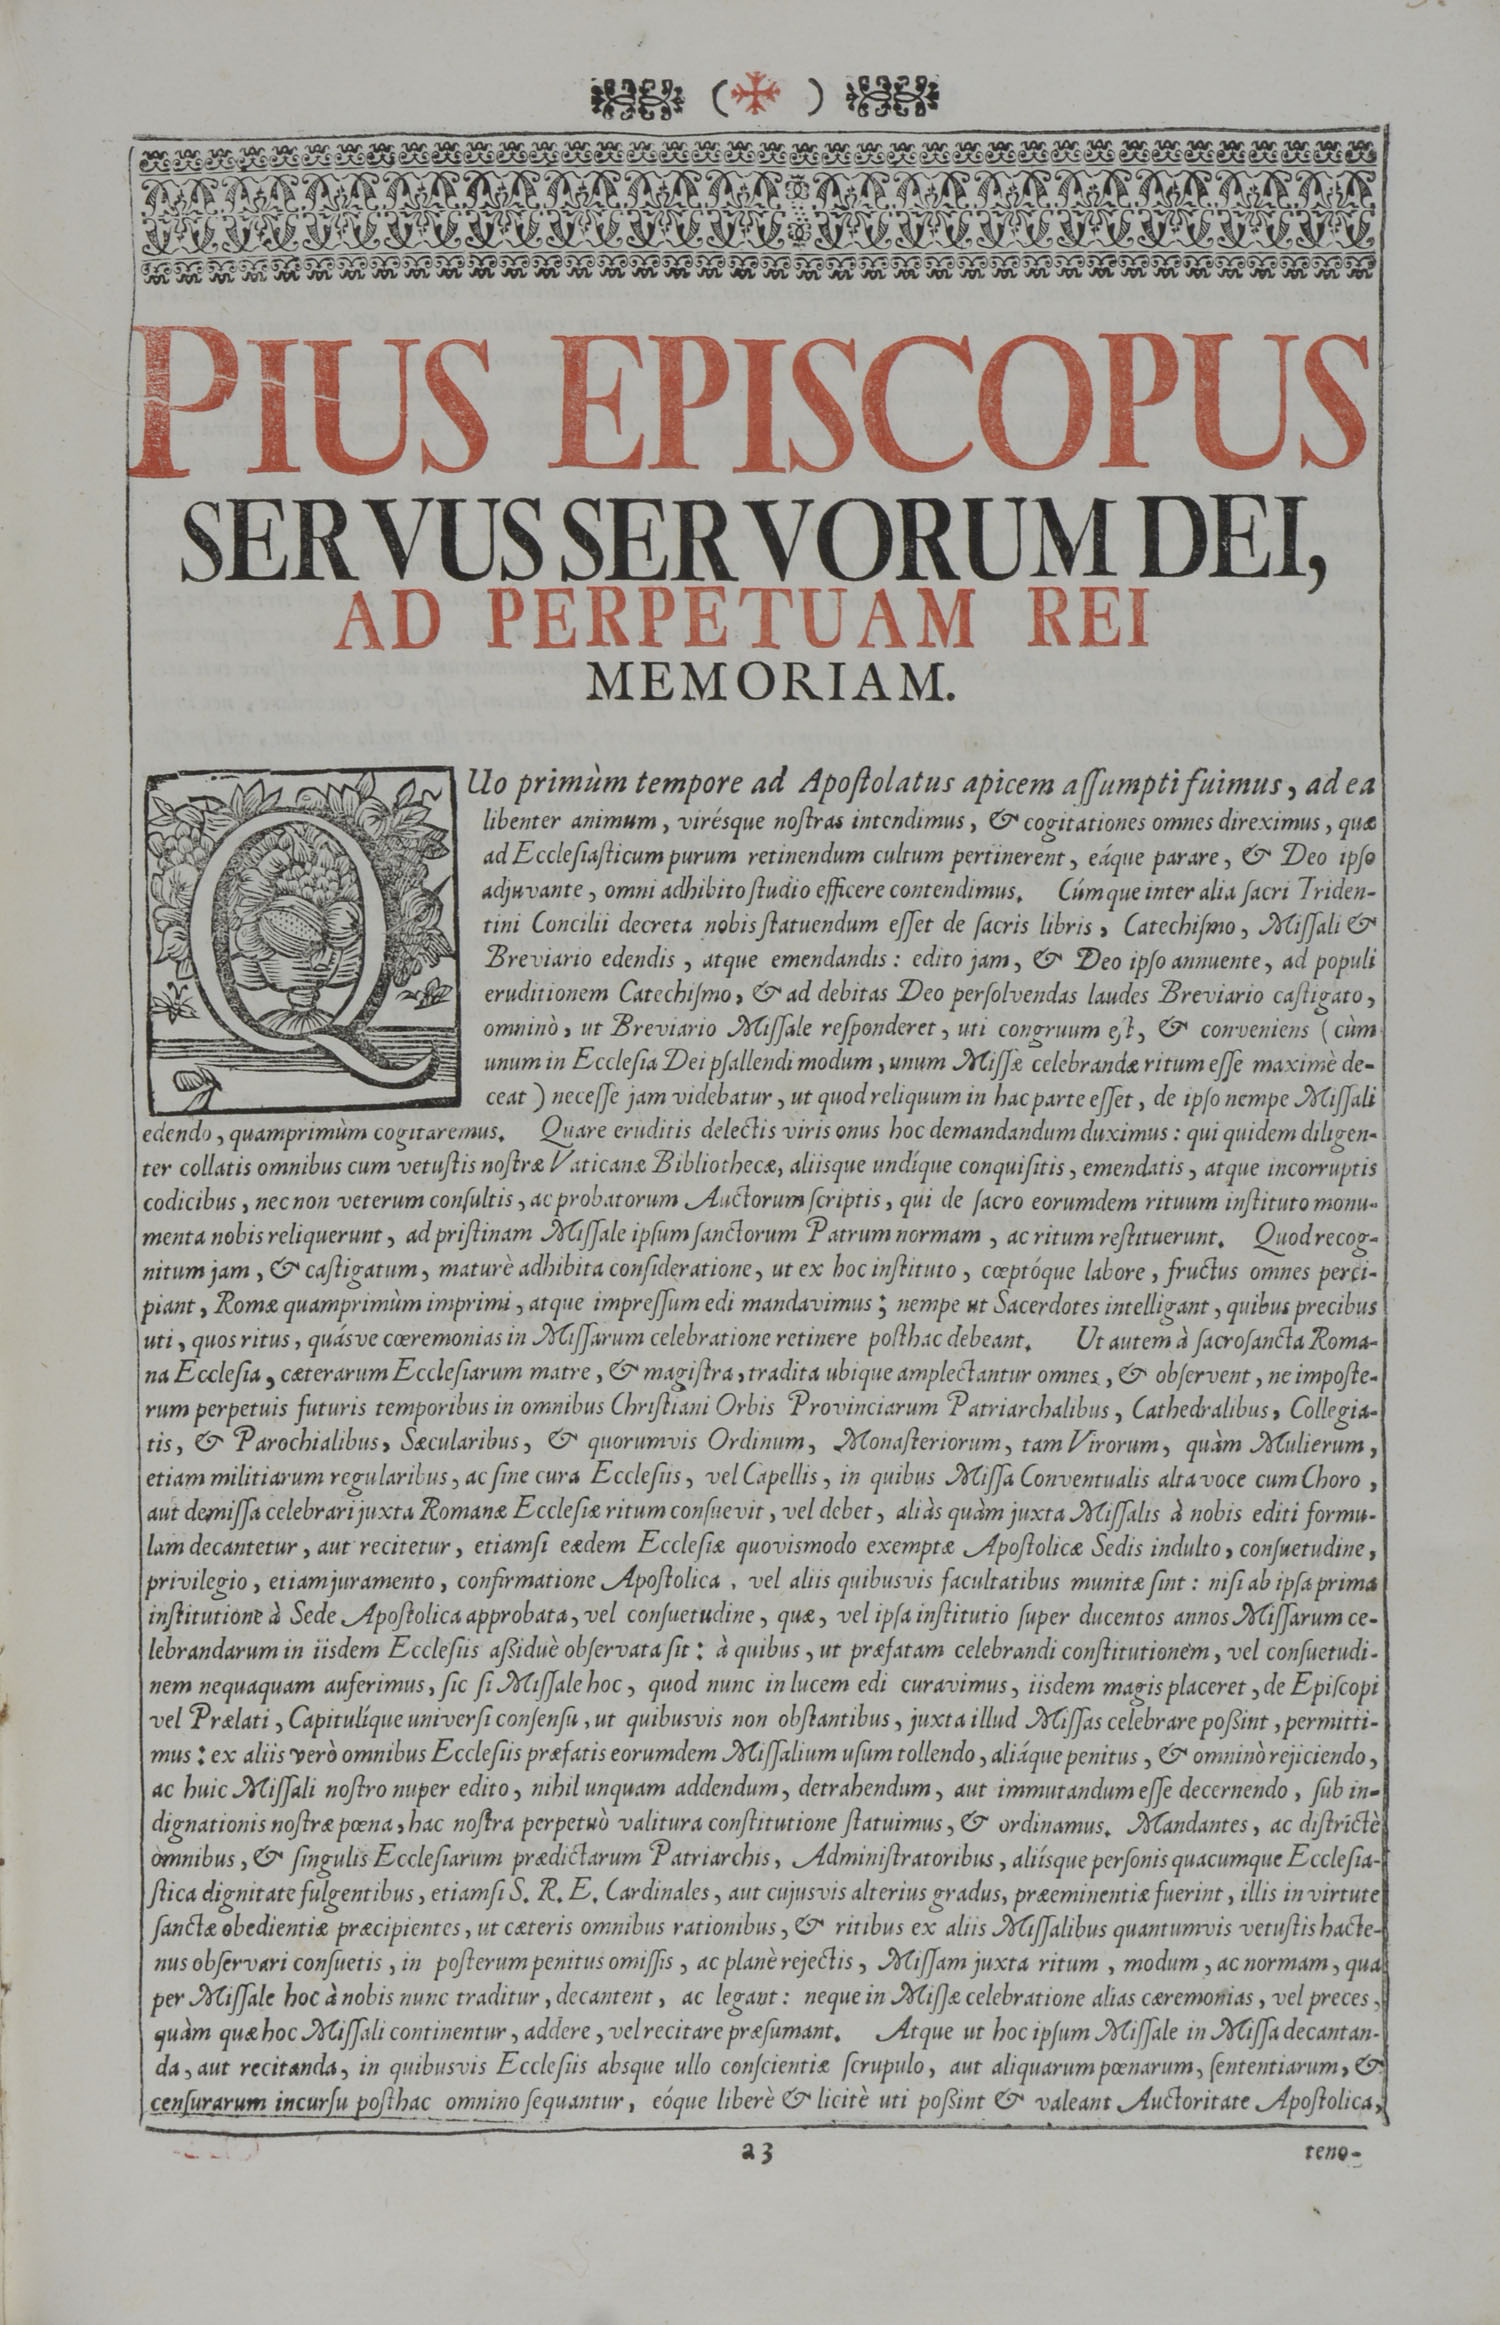 PIUS EPISCOPUS
SERVUS SERVORUM DEI,
AD PERPETUAM REI
MEMORIAM.
QUo primùm tempore ad Apoſtolatus apicem aſſumpti fuimus, ad ea
libenter animum, virésque noſtras intendimus, & cogitationes omnes direximus, quæ
ad Eccleſiaſticum purum retinendum cultum pertinerent, eáque parare, & Deo ipſo
adjuvante, omni adhibito ſtudio efficere contendimus. Cúmque inter alia ſacri Triden-
tini Concilii decreta nobis ſtatuendum eſſet de ſacris libris, Catechiſmo, Miſſali &
Breviario edendis, atque emendandis: edito jam, & Deo ipſo annuente, ad populi
eruditionem Catechiſmo, & ad debitas Deo perſolvendas laudes Breviario caſtigato,
omninò, ut Breviario Miſſale reſponderet, uti congruum eſt, & conveniens (cùm
unum in Eccleſia Dei pſallendi modum, unum Miſſæ celebrandæ ritum eſſe maximè de-
ceat) neceſſe jam videbatur, ut quod reliquum in hac parte eſſet, de ipſo nempe Miſſali
edendo, quamprimùm cogitaremus. Quare eruditis delectis viris onus hoc demandandum duximus: qui quidem diligen-
ter collatis omnibus cum vetuſtis noſtræ Vaticanæ Bibliothecæ, aliisque undíque conquiſitis, emendatis, atque incorruptis
codicibus, nec non veterum conſultis, ac probatorum Auctorum ſcriptis, qui de ſacro eorumdem rituum inſtituto monu-
menta nobis reliquerunt, ad priſtinam Miſſale ipſum ſanctorum Patrum normam, ac ritum reſtituerunt. Quod recog-
nitum jam, & caſtigatum, maturè adhibita conſideratione, ut ex hoc inſtituto, cœptóque labore, fructus omnes perci-
piant, Romæ quamprimùm imprimi, atque impreſſum edi mandavimus; nempe ut Sacerdotes intelligant, quibus precibus
uti, quos ritus, quásve cœremonias in Miſſarum celebratione retinere poſthac debeant. Ut autem à ſacroſancta Roma-
na Eccleſia, cæterarum Eccleſiarum matre, & magiſtra, tradita ubique amplectantur omnes, & obſervent, ne impoſte-
rum perpetuis futuris temporibus in omnibus Chriſtiani Orbis Provinciarum Patriarchalibus, Cathedralibus, Collegia-
tis, & Parochialibus, Sæcularibus, & quorumvis Ordinum, Monaſteriorum, tam Virorum, quàm Mulierum,
etiam militiarum regularibus, ac ſine cura Eccleſiis, vel Capellis, in quibus Miſſa Conventualis alta voce cum Choro,
aut demiſſa celebrari juxta Romanæ Eccleſiæ ritum conſuevit, vel debet, aliàs quàm juxta Miſſalis à nobis editi formu-
lam decantetur, aut recitetur, etiamſi eædem Eccleſiæ quovismodo exemptæ Apoſtolicæ Sedis indulto, conſuetudine,
privilegio, etiam juramento, confirmatione Apoſtolica, vel aliis quibusvis facultatibus munitæ ſint: niſi ab ipſa prima
inſtitutione à Sede Apoſtolica approbata, vel conſuetudine, quæ, vel ipſa inſtitutio ſuper ducentos annos Miſſarum ce-
lebrandarum in iisdem Eccleſiis aßiduè obſervata ſit: à quibus, ut præfatam celebrandi conſtitutionem, vel conſuetudi-
nem nequaquam auferimus, ſic ſi Miſſale hoc, quod nunc in lucem edi curavimus, iisdem magis placeret, de Epiſcopi
vel Prælati, Capitulíque univerſi conſenſu, ut quibusvis non obſtantibus, juxta illud Miſſas celebrare poßint, permitti-
mus: ex aliis verò omnibus Eccleſiis præfatis eorumdem Miſſalium uſum tollendo, aliáque penitus, & omninò rejiciendo,
ac huic Miſſali noſtro nuper edito, nihil unquam addendum, detrahendum, aut immutandum eſſe decernendo, ſub in-
dignationis noſtræ pœna, hac noſtra perpetuò valitura conſtitutione ſtatuimus, & ordinamus. Mandantes, ac diſtrictè
omnibus, & ſingulis Eccleſiarum prædictarum Patriarchis, Adminiſtratoribus, aliísque perſonis quacumque Eccleſia-
ſtica dignitate fulgentibus, etiamſi S. R. E. Cardinales, aut cujusvis alterius gradus, præeminentiæ fuerint, illis in virtute
ſanctæ obedientiæ præcipientes, ut cæteris omnibus rationibus, & ritibus ex aliis Miſſalibus quantumvis vetuſtis hacte-
nus obſervari conſuetis, in poſterum penitus omiſſis, ac planè rejectis, Miſſam juxta ritum, modum, ac normam, quæ
per Miſſale hoc à nobis nunc traditur, decantent, ac legant: neque in Miſſæ celebratione alias cæremonias, vel preces,
quàm quæ hoc Miſſali continentur, addere, vel recitare præſumant. Atque ut hoc ipſum Miſſale in Miſſa decantan-
da, aut recitanda, in quibusvis Eccleſiis absque ullo conſcientiæ ſcrupulo, aut aliquarum pœnarum, ſententiarum, &
cenſurarum incurſu poſthac omnino ſequantur, eóque liberè & licitè uti poßint & valeant Auctoritate Apoſtolica,
a3 teno-